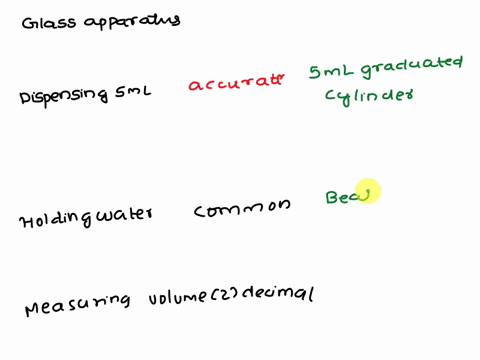 Glass apparatus
Dispensing 5mL accurate 5mL graduated
cylinder
Holding water common Bea
Measuring volume (2) decimal